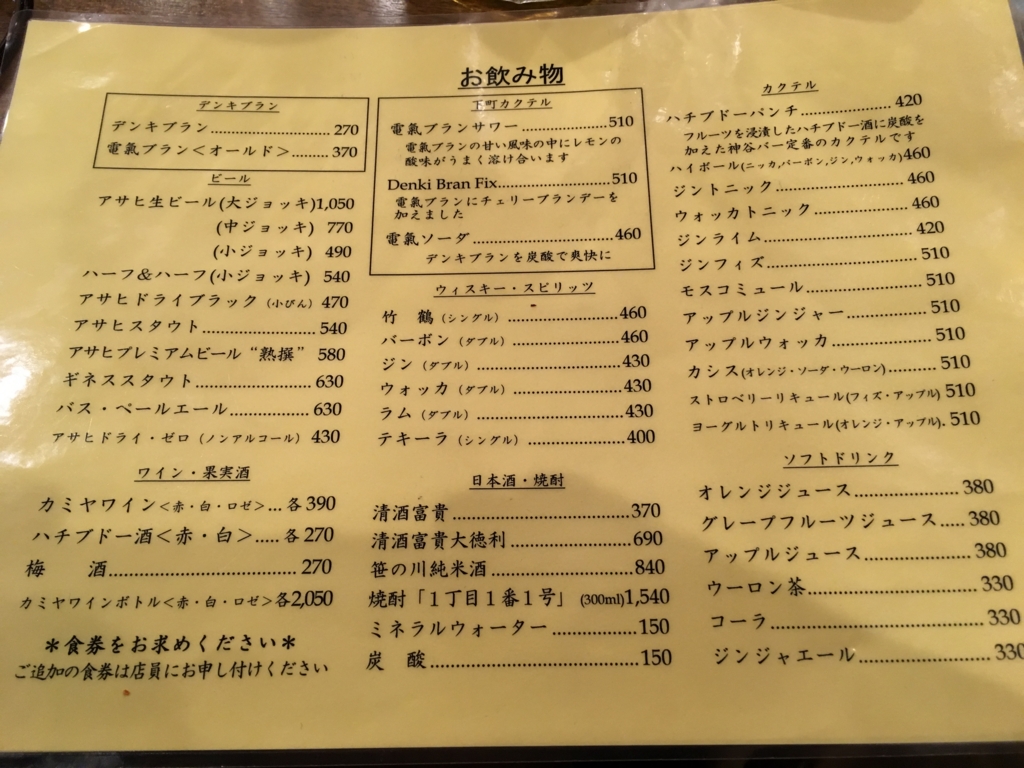 お飲み物
デンキブラン
デンキブラン.....................270
電氣ブラン<オールド>.........370
ビール
アサヒ生ビール(大ジョッキ)1,050
(中ジョッキ) 770
(小ジョッキ) 490
ハーフ&ハーフ(小ジョッキ) 540
アサヒドライブラック(小びん)470
アサヒスタウト.....................540
アサヒプレミアムビール“熟撰” 580
ギネススタウト.....................630
バス・ペールエール...............630
アサヒドライ・ゼロ(ノンアルコール) 430
ワイン・果実酒
カミヤワイン<赤・白・ロゼ>...各390
ハチブドー酒<赤・白>.....各270
梅 酒.......................................270
カミヤワインボトル<赤・白・ロゼ>各2,050
*食券をお求めください*
ご追加の食券は店員にお申し付けください
下町カクテル
電氣ブランサワー.................510
電氣ブランの甘い風味の中にレモンの
酸味がうまく溶け合います
Denki Bran Fix.......................510
電氣ブランにチェリーブランデーを
加えました
電氣ソーダ.............................460
デンキブランを炭酸で爽快に
ウィスキー・スピリッツ
竹 鶴(シングル)......................460
バーボン(ダブル).....................460
ジン(ダブル)............................430
ウォッカ(ダブル).....................430
ラム(ダブル)............................430
テキーラ(シングル)..................400
日本酒・焼酎
清酒富貴.................................370
清酒富貴大徳利.......................690
笹の川純米酒..........................840
焼酎「1丁目1番1号」(300ml)1,540
ミネラルウォーター................150
炭 酸.......................................150
カクテル
ハチブドーパンチ.................420
フルーツを浸漬したハチブドー酒に炭酸を
加えた神谷バー定番のカクテルです
ハイボール(ニッカ,バーボン,ジン,ウォッカ)460
ジントニック..........................460
ウォッカトニック...................460
ジンライム.............................420
ジンフィズ.............................510
モスコミュール.......................510
アップルジンジャー................510
アップルウォッカ...................510
カシス(オレンジ・ソーダ・ウーロン)..........510
ストロベリーリキュール(フィズ・アップル) 510
ヨーグルトリキュール(オレンジ・アップル). 510
ソフトドリンク
オレンジジュース...................380
グレープフルーツジュース.....380
アップルジュース...................380
ウーロン茶.............................330
コーラ....................................330
ジンジャエール.......................330